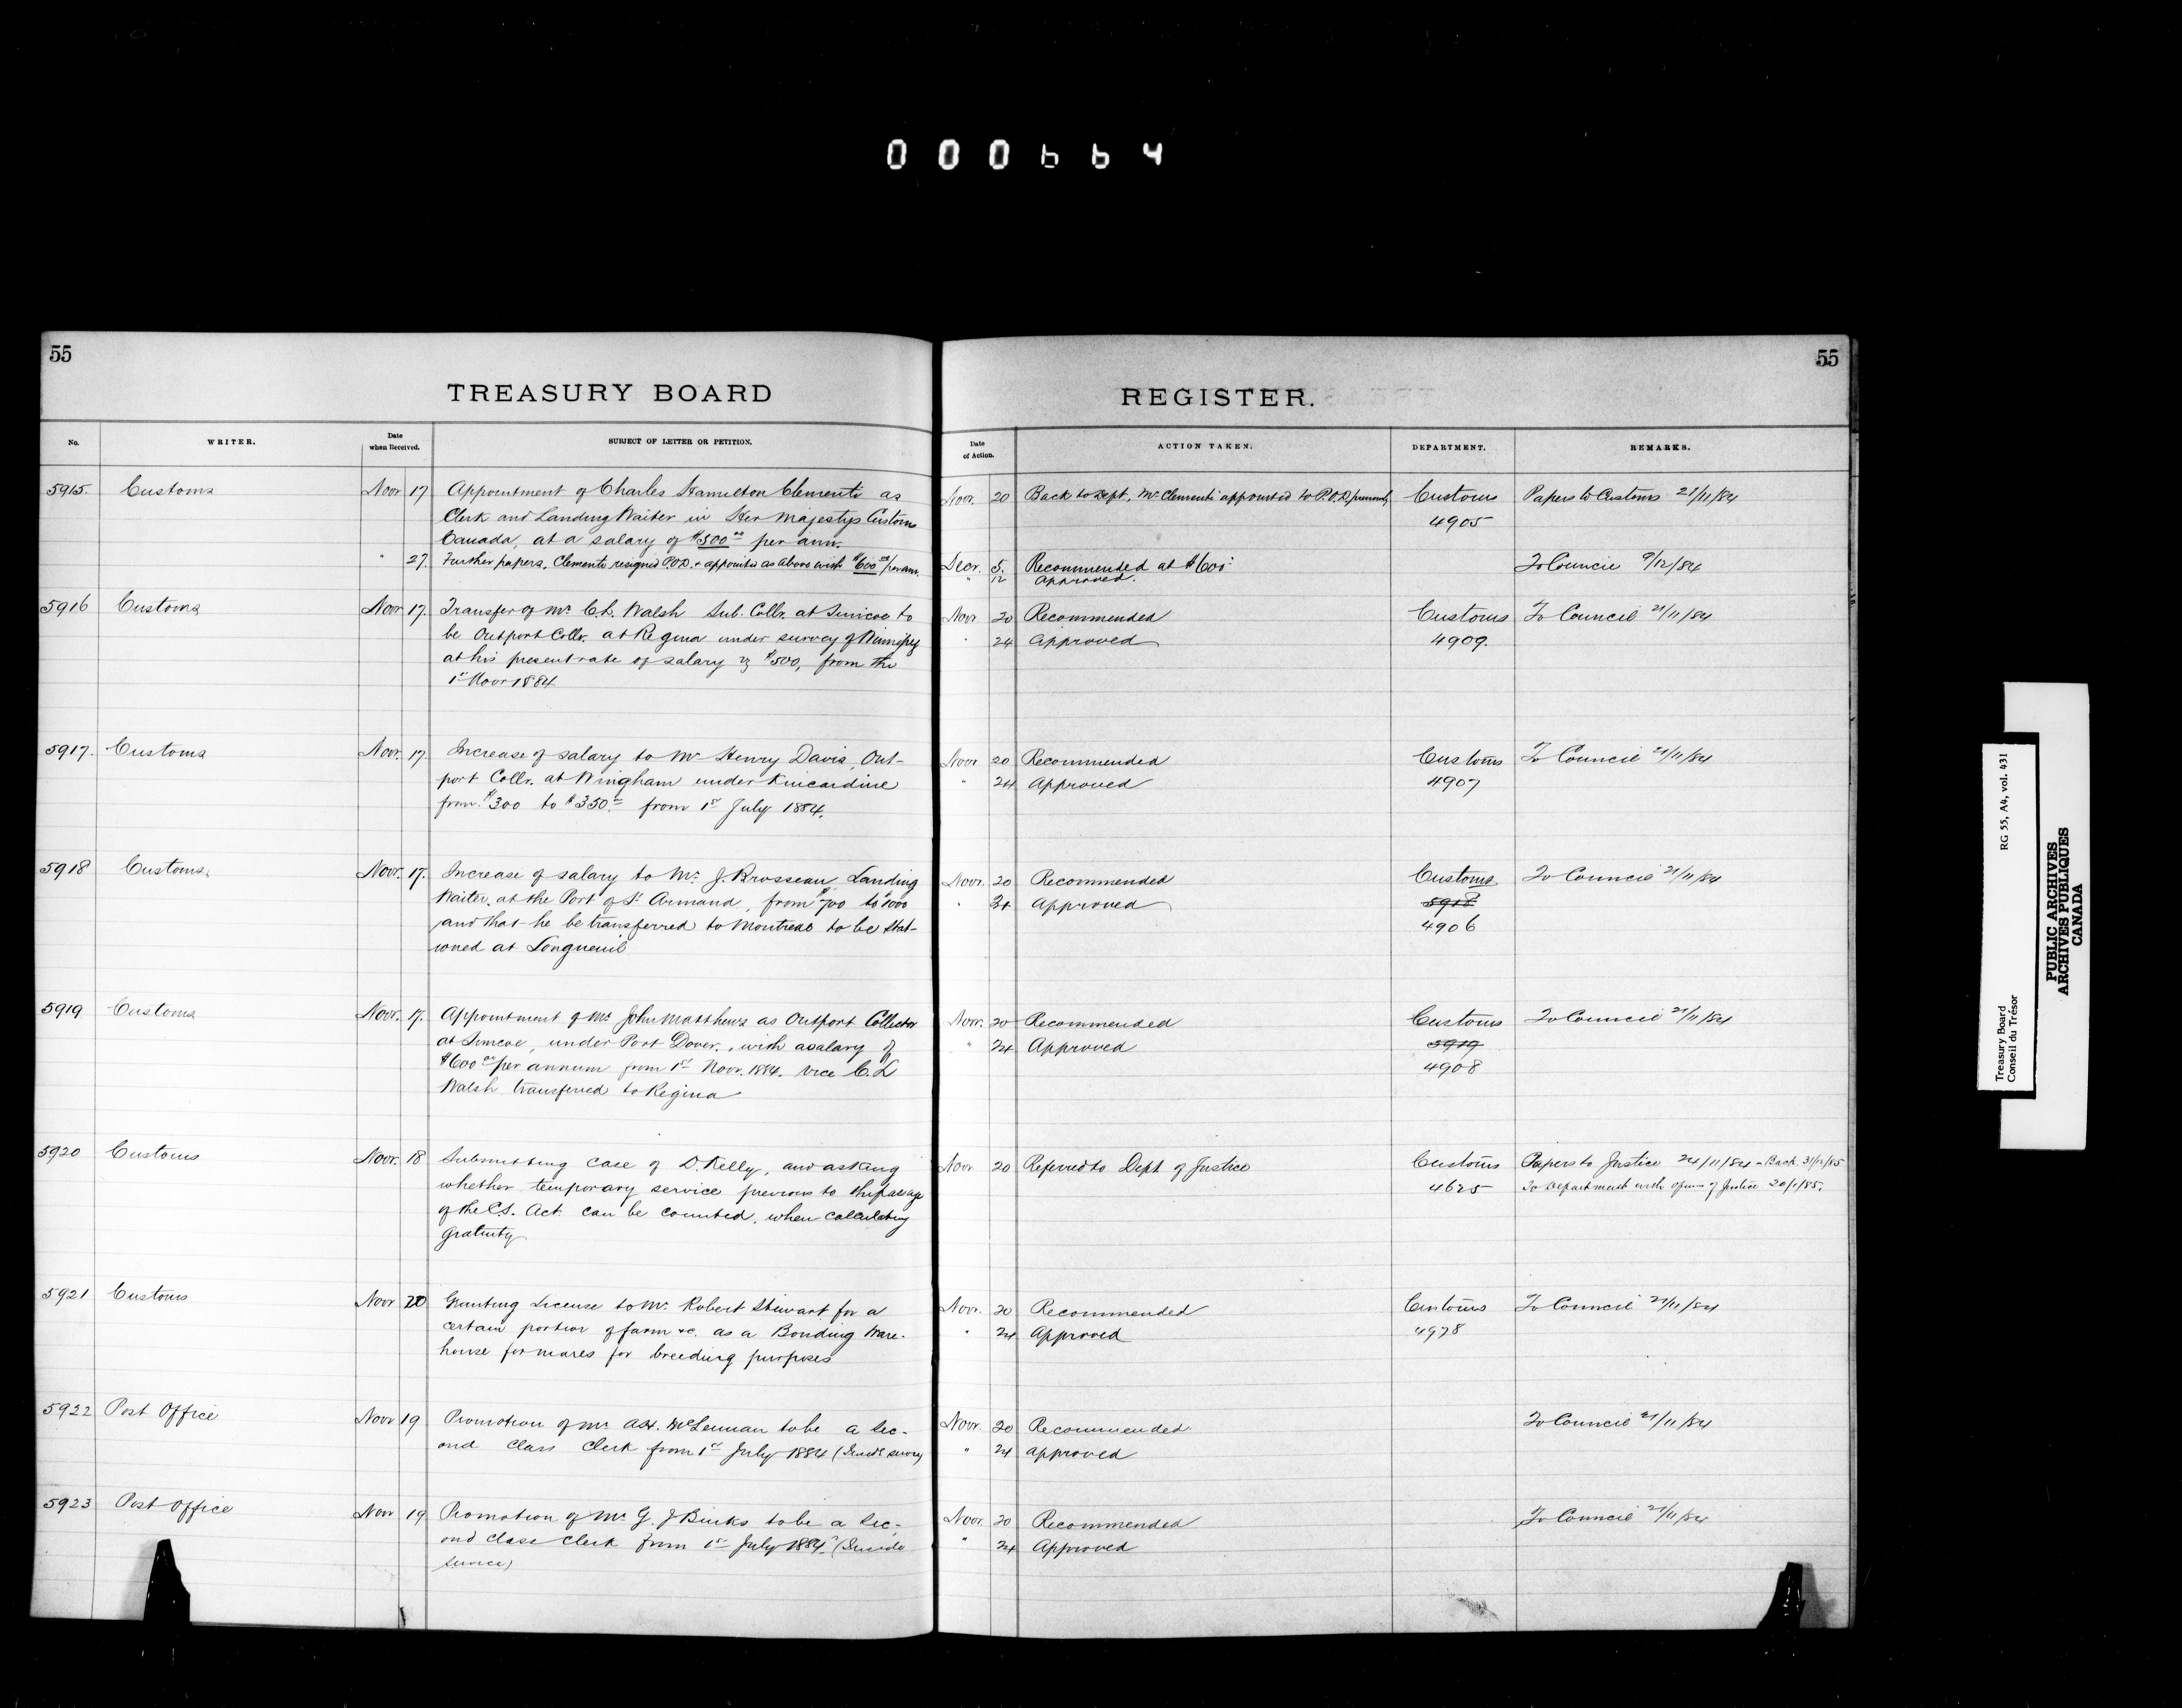 000664
55
TREASURY BOARD
No.
WRITER.
Date
when Received.
SUBJECT OF LETTER OR PETITION.
5915. Customs Novr 17 Appointment of Charles Hamilton Clements as
Clerk and Landing Waiter in Her Majestys Customs
Canada, at a salary of $500 00 per ann.
" 27 Further papers, Clements resigned P.O.D. & appointed as above with $600 00/per ann.
5916 Customs Novr 17. Transfer of Mr C.L. Walsh Sub. Collr. at Simcoe to
be Outport Collr. at Regina under survey of Winnipeg
at his present rate of salary of $500, from the
1st Novr 1884
5917. Customs Novr. 17. Increase of salary to Mr Henry Davis, Out-
port Collr. at Wingham under Kincardine
from $300 to $350 from 1st July 1884.
5918 Customs. Novr. 17. Increase of salary to Mr. J. Brosseau, Landing
Waiter, at the Port of St Armand, from $700 to $1000
and that he be transferred to Montreal to be stat-
ioned at Longueuil
5919 Customs Novr. 17. Appointment of Mr John Matthews as Outport Collector
at Simcoe, under Port Dover, with a salary of
$600 00 per annum from 1st Novr. 1884. vice C.L
Walsh transferred to Regina
5920 Customs Novr. 18 Submitting case of D. Kelly, and asking
whether temporary service previous to the passage
of the C.S. Act can be counted, when calculating
gratuity
5921 Customs Novr 20 Granting License to Mr. Robert Stewart for a
certain portion of farm &c. as a Bonding Ware-
house for mares for breeding purposes
5922 Post Office Novr 19 Promotion of Mr. McLennan to be a Sec-
ond Class Clerk from 1st July 1884 (Inside service)
5923 Post Office Novr 19 Promotion of Mr G. J Binks to be a Sec-
ond class clerk from 1st July 1884. (Inside
service)
55
REGISTER.
Date
of Action.
ACTION TAKEN.
DEPARTMENT.
REMARKS.
Novr. 20 Back to Dept, Mr Clements appointed to P.O.D. Customs Papers to Customs 21/11/84
4905
Decr. 5. Recommended at $600 To Council 9/12/84
" 12 Approved.
Novr 20 Recommended Customs To Council 21/11/84
" 24 Approved 4909.
Novr 20 Recommended Customs To Council 21/11/84
" 24 Approved 4907
Novr. 20 Recommended Customs To Council 21/11/84
" 24 Approved 5918
4906
Novr. 20 Recommended Customs To Council 21/11/84
" 24 Approved 5919
4908
Novr 20 Referred to Dept of Justice Customs Papers to Justice 24/11/84 - Back
4625 To Department with of Justice 20/1/85.
Novr. 20 Recommended Customs To Council 21/11/84
" 24 Approved 4978
Novr. 20 Recommended To Council 21/11/84
" 24 Approved
Novr. 20 Recommended To Council 21/11/84
" 24 Approved
RG 55, A4, vol. 431
Treasury Board
Conseil du Trésor
PUBLIC ARCHIVES
ARCHIVES PUBLIQUES
CANADA